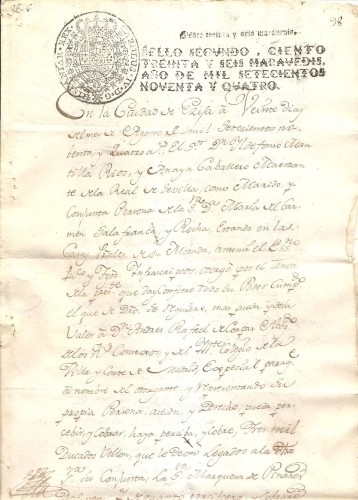 98
Ciento treinta y seis maravedis.
SELLO SEGUNDO, CIENTO
TREINTA Y SEIS MARAVEDIS,
AÑO DE MIL SETECIENTOS
NOVENTA Y QUATRO.
En la Ciudad de Ezija â Veinte dias
del mes de Agosto de mil Setecientos no
benta y Quatro a.s El S.or Dn. Yldefonso Man
tilla Rios, y Anaya Caballero Maestran
te de la Real de Sevilla, como Marido, y
Conjunta Persona de la S.ra D.a Maria del Car
men Galafranca, y Rocha, estando en las
Casas de su Morada, antemi el Ess.no
y Testigos infraescriptos, otorgó por el tenor
de la pres.te que da, y Confiere todo su Poder Cumpl.do
el que de Dro. se requiere, mas puede y deve
Valer à Dn. Andres Rafael de
de los R.s Consexos, y del Colegio de la
Villa, y Corte de Madrid, Especial para q.e
à nombre del otorgante, y Representando su
propia Persona, accion, y Derecho, pueda per
cebir, y Cobrar, haya, perciba, y Cobre, Tres mil
Ducados Vellon, que le Dexo Legados ala Dha
su Conjunta, La S.ra Marquesa de Peñaflor